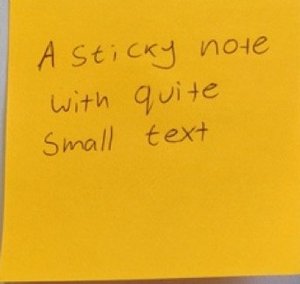 A sticky note
with quite
Small text